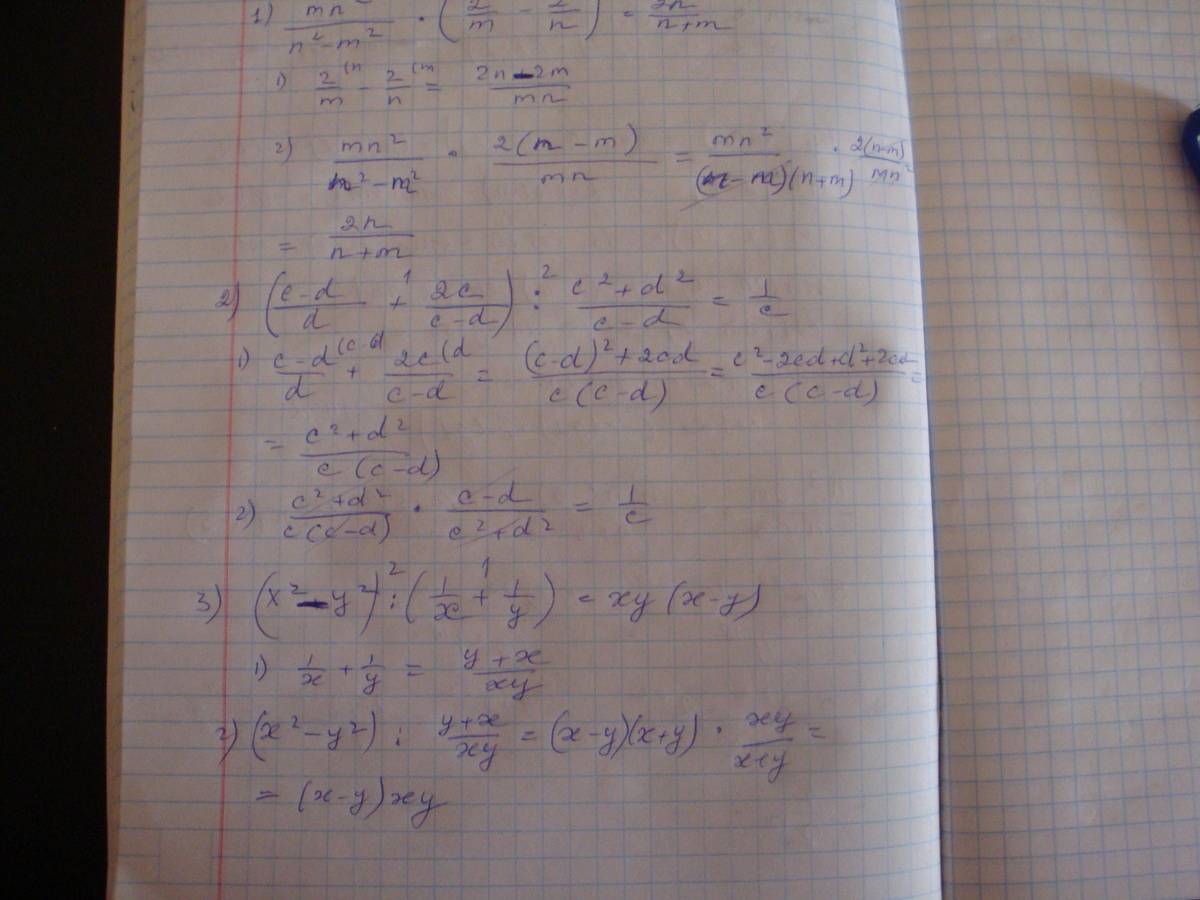 1) mn²/(n²-m²) · (2/m - 2/n) = 2n/(n+m)
1) 2/m (n - 2/n (m = (2n-2m)/(mn)
2) mn²/(n²-m²) · 2(n-m)/(mn) = mn²/((n-m)(n+m)) · 2(n-m)/(mn) =
= 2n/(n+m)
2) ((c-d)/d +¹ 2c/(c-d)) :² (c²+d²)/(c-d) = 1/c
1) (c-d)/d (c-d + 2c/(c-d) (d = ((c-d)²+2cd)/(c(c-d)) = (c²-2cd+d²+2cd)/(c(c-d)) =
= (c²+d²)/(c(c-d))
2) (c²+d²)/(c(c-d)) · (c-d)/(c²+d²) = 1/c
3) (x²-y²) :² (1/x +¹ 1/y) = xy(x-y)
1) 1/x + 1/y = (y+x)/(xy)
2) (x²-y²) : (y+x)/(xy) = (x-y)(x+y) · xy/(x+y) =
= (x-y)xy